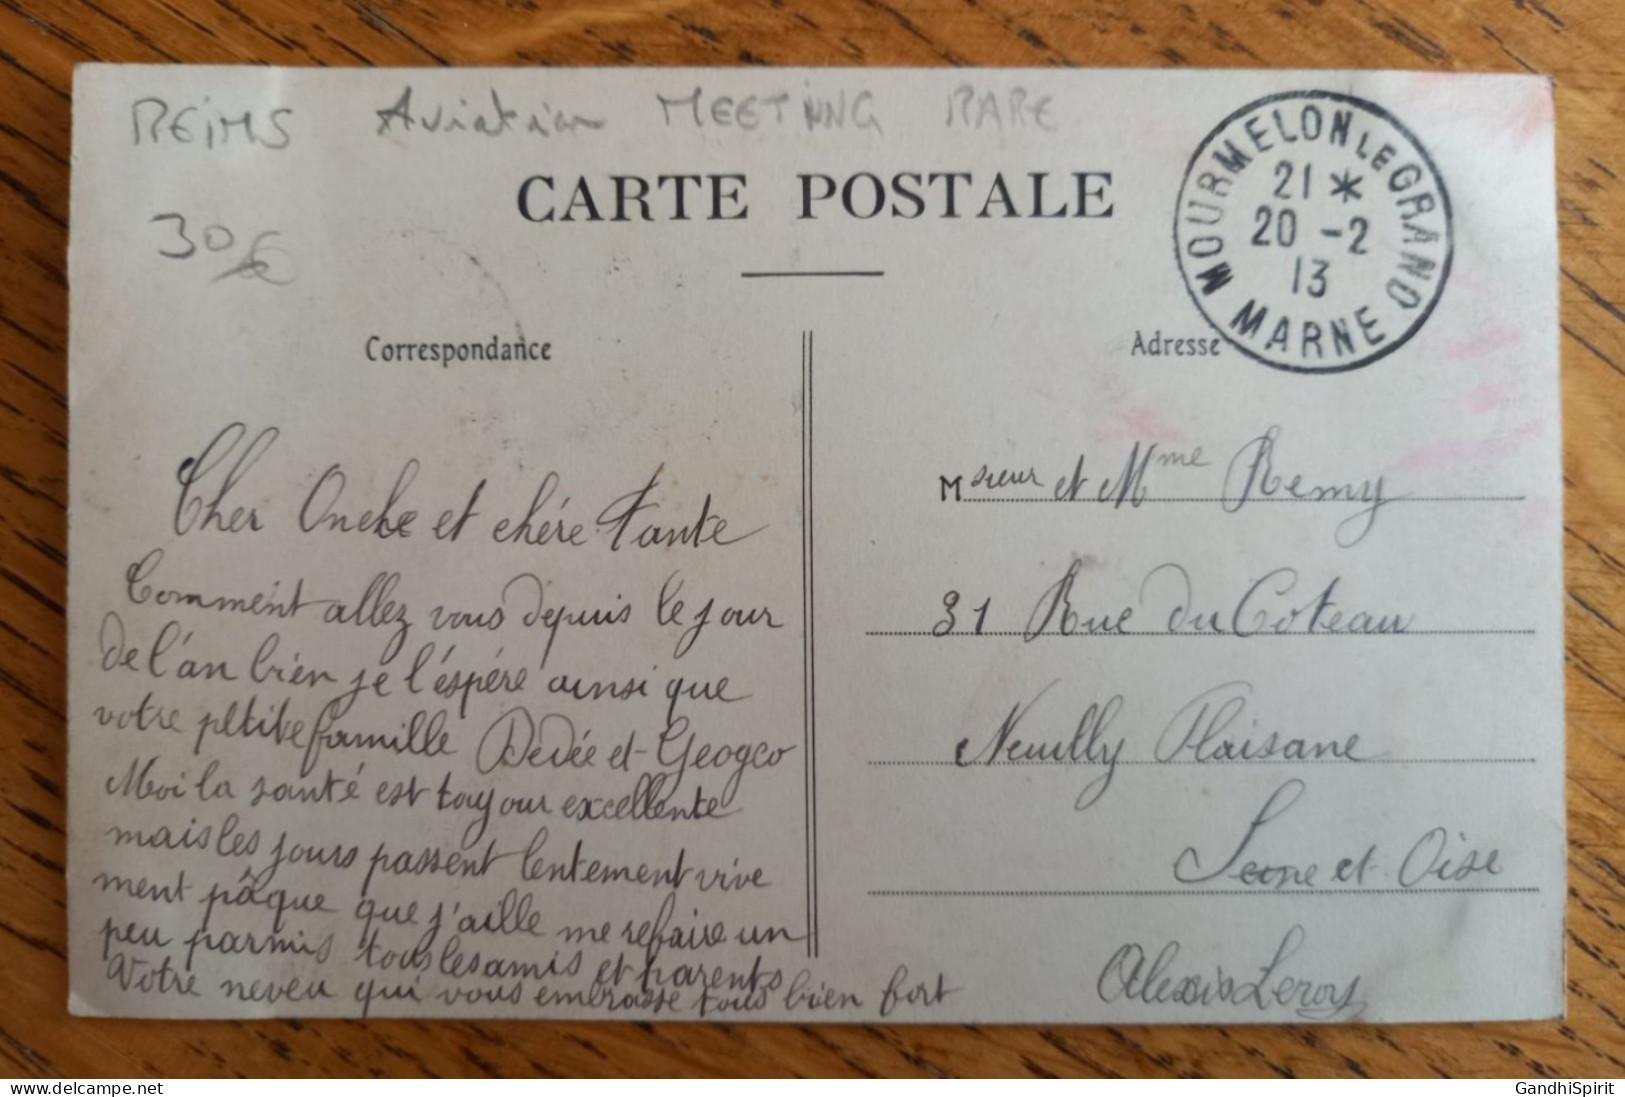 REIMS Aviation MEETING RARE
30 €
CARTE POSTALE
MOURMELON LE GRAND
21 *
20 - 2
13
MARNE
Correspondance
Adresse
Cher Oncle et chére tante
Comment allez vous depuis le jour
de l'an bien je l'éspére ainsi que
votre petite famille Dedée et Geogeo
Moi la santé est toujour excellente
mais les jours passent lentement vive
ment pâque que j'aille me refaire un
peu parmis tous les amis et parents
Votre neveu qui vous embrasse tous bien fort
Msieur et Mme Remy
31 Rue du Coteau
Neuilly Plaisane
Seine et Oise
Alexis Leroy
www.delcampe.net
GandhiSpirit